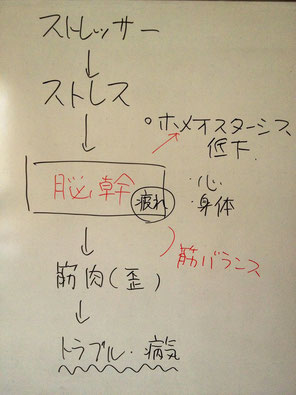 ストレッサー
↓
ストレス
↓
○ホメオスターシス
低下
脳幹
疲れ
・心
・身体
↓
筋バランス
筋肉(歪)
↓
トラブル・病気